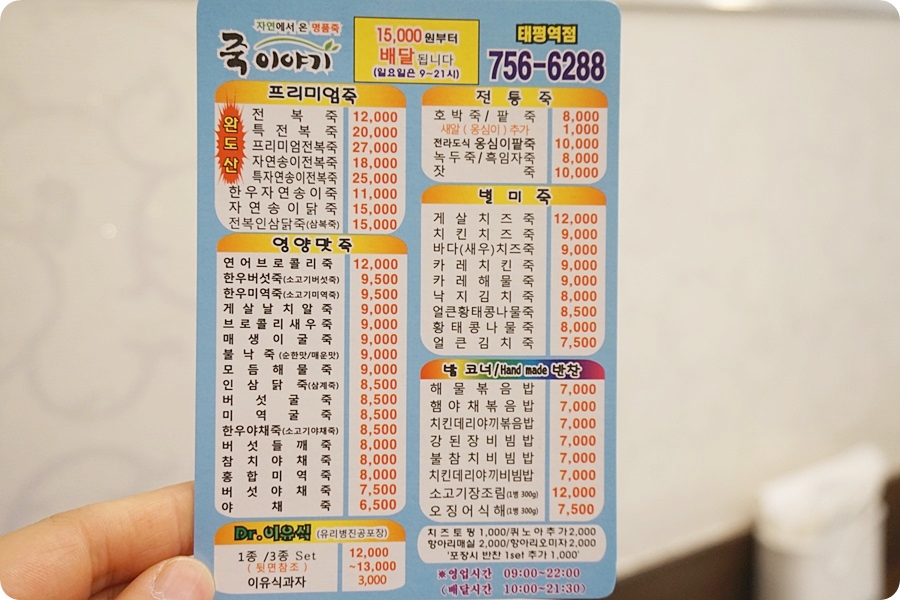 자연에서 온 명품죽
죽이야기
15,000원부터
배달됩니다
(일요일은 9~21시)
태평역점
756-6288
프리미엄죽
완도산
전복죽 12,000
특전복죽 20,000
프리미엄전복죽 27,000
자연송이전복죽 18,000
특자연송이전복죽 25,000
한우자연송이죽 11,000
자연송이닭죽 15,000
전복인삼닭죽(삼복죽) 15,000
영양맛죽
연어브로콜리죽 12,000
한우버섯죽(소고기버섯죽) 9,500
한우미역죽(소고기미역죽) 9,500
게살날치알죽 9,000
브로콜리새우죽 9,000
매생이굴죽 9,000
불낙죽(순한맛/매운맛) 9,000
모듬해물죽 9,000
인삼닭죽(삼계죽) 8,500
버섯굴죽 8,500
미역굴죽 8,500
한우야채죽(소고기야채죽) 8,500
버섯들깨죽 8,000
참치야채죽 8,000
홍합미역죽 8,000
버섯야채죽 7,500
야채죽 6,500
Dr.이유식 (유리병진공포장)
1종 /3종 Set 12,000
( 뒷면참조 ) ~13,000
이유식과자 3,000
전통죽
호박죽/팥죽 8,000
새알(옹심이)추가 1,000
전라도식 옹심이팥죽 10,000
녹두죽/흑임자죽 8,000
잣죽 10,000
별미죽
게살치즈죽 12,000
치킨치즈죽 9,000
바다(새우)치즈죽 9,000
카레치킨죽 9,000
카레해물죽 9,000
낙지김치죽 8,000
얼큰황태콩나물죽 8,500
황태콩나물죽 8,000
얼큰김치죽 7,500
밥 코너/Hand made 반찬
해물볶음밥 7,000
햄야채볶음밥 7,000
치킨데리야끼볶음밥 7,000
강된장비빔밥 7,000
불참치비빔밥 7,000
치킨데리야끼비빔밥 7,000
소고기장조림(1병 300g) 12,000
오징어식해(1병 300g) 7,500
치즈토핑 1,000/퀴노아추가 2,000
항아리매실 2,000/항아리오미자 2,000
'포장시 반찬 1set 추가 1,000'
※영업시간 09:00~22:00
(배달시간 10:00~21:30)